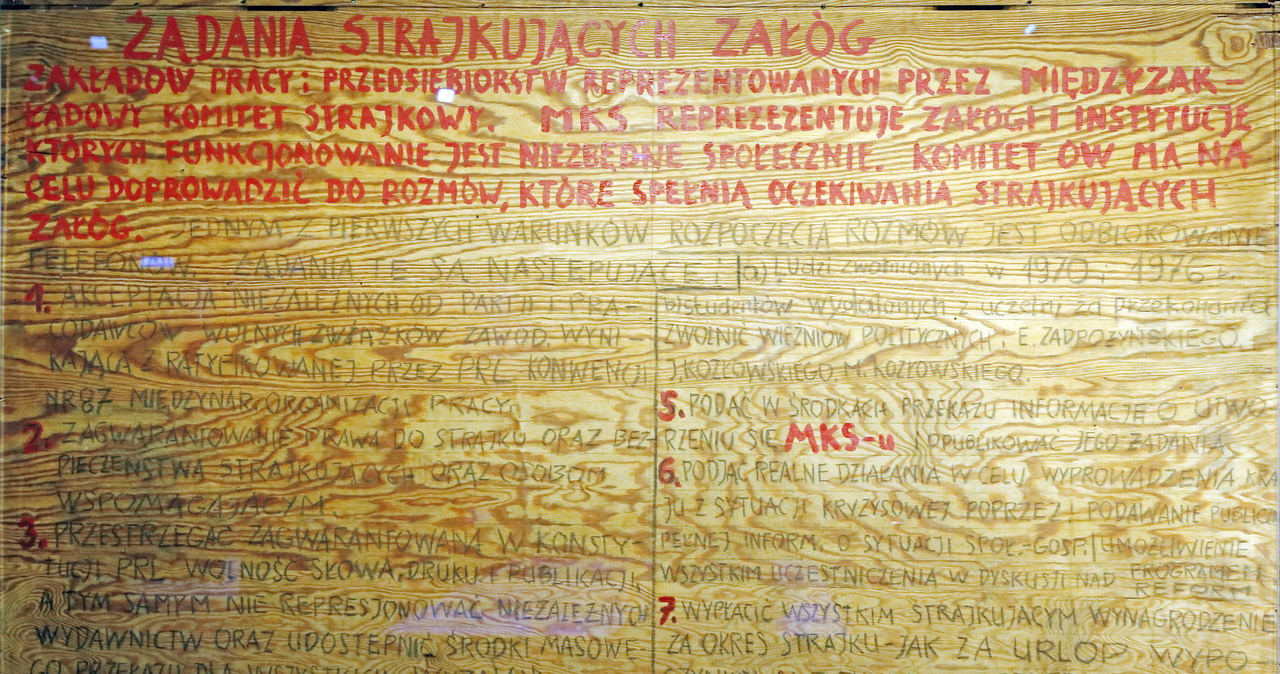 ŻĄDANIA STRAJKUJĄCYCH ZAŁÓG
ZAKŁADÓW PRACY I PRZEDSIĘBIORSTW REPREZENTOWANYCH PRZEZ MIĘDZYZAK-
ŁADOWY KOMITET STRAJKOWY. MKS REPREZEZENTUJE ZAŁOGI I INSTYTUCJE
KTÓRYCH FUNKCJONOWANIE JEST NIEZBĘDNE SPOŁECZNIE. KOMITET ÓW MA NA
CELU DOPROWADZIĆ DO ROZMÓW, KTÓRE SPEŁNIĄ OCZEKIWANIA STRAJKUJĄCYCH
ZAŁÓG. JEDNYM Z PIERWSZYCH WARUNKÓW ROZPOCZĘCIA ROZMÓW JEST ODBLOKOWANIE
TELEFONÓW. ŻĄDANIA TE SĄ NASTĘPUJĄCE:
1. AKCEPTACJA NIEZALEŻNYCH OD PARTII I PRA-
CODAWCÓW WOLNYCH ZWIĄZKÓW ZAWOD. WYNI-
KAJĄCA Z RATYFIKOWANEJ PRZEZ PRL KONWENCJI
NR 87 MIĘDZYNAR. ORGANIZACJI PRACY.
2. ZAGWARANTOWANIE PRAWA DO STRAJKU ORAZ BEZ-
PIECZEŃSTWA STRAJKUJĄCYCH ORAZ OSOBOM
WSPOMAGAJĄCYM.
3. PRZESTRZEGAĆ ZAGWARANTOWANĄ W KONSTY-
TUCJI PRL WOLNOŚĆ SŁOWA, DRUKU I PUBLIKACJI,
A TYM SAMYM NIE REPRESJONOWAĆ NIEZALEŻNYCH
WYDAWNICTW ORAZ UDOSTĘPNIĆ ŚRODKI MASOWE-
GO PRZEKAZU DLA WSZYSTKICH
a) ludzi zwolnionych w 1970 i 1976 r.
b) studentów wydalonych z uczelni za przekonania
ZWOLNIĆ WIĘŹNIÓW POLITYCZNYCH: E. ZADROŻYŃSKIEGO,
J. KOZŁOWSKIEGO M. KOZŁOWSKIEGO.
5. PODAĆ W ŚRODKACH PRZEKAZU INFORMACJĘ O UTWO-
RZENIU SIĘ MKS-u I OPUBLIKOWAĆ JEGO ŻĄDANIA
6. PODJĄĆ REALNE DZIAŁANIA W CELU WYPROWADZENIA KRA
JU Z SYTUACJI KRYZYSOWEJ POPRZEZ: PODAWANIE PUBLICZ
PEŁNEJ INFORM. O SYTUACJI SPOŁ.-GOSP., UMOŻLIWIENIE
WSZYSTKIM UCZESTNICZENIA W DYSKUSJI NAD PROGRAMEM
REFORM
7. WYPŁACIĆ WSZYSTKIM STRAJKUJĄCYM WYNAGRODZENIE
ZA OKRES STRAJKU-JAK ZA URLOP WYPO